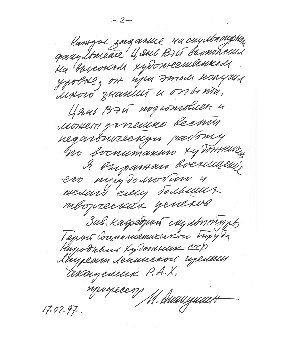 — 2 —
Каждое задание на скульптурном
факультете Цянь Вэй выполнял
на высоком художественном
уровне, он при этом получил
много знаний и опыта.
Цянь Вэй подготовлен и
может успешно вести
педагогическую работу
по воспитанию художников.
Я выражаю восхищение
его трудолюбием и
желаю ему больших
творческих успехов
Зав. кафедрой скульптуры,
Герой Социалистического Труда
Народный художник СССР
Лауреат Ленинской премии
Академик Р.А.Х.
профессор
М. Аникушин
17.02.97.